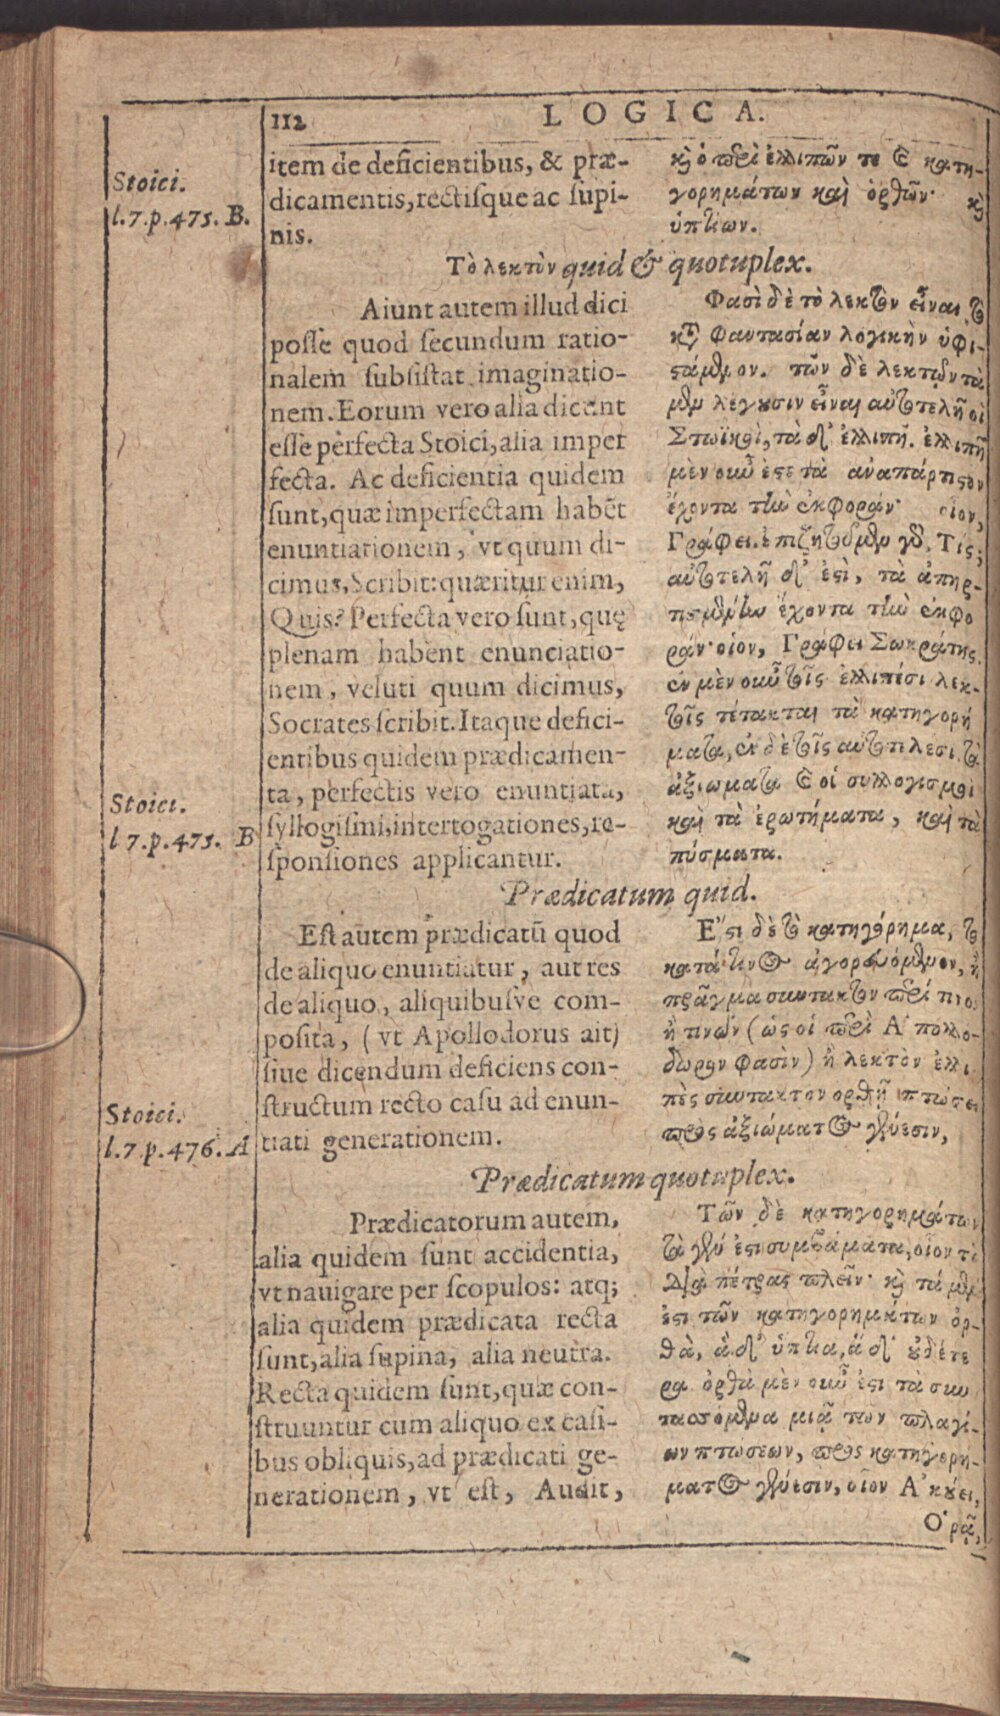 112
LOGICA.
Stoici.
l.7.p.475. B.
item de deficientibus, & præ-
dicamentis, rectisque ac supi-
nis.
κὶ ὁ περὶ ἐλλιπῶν τε & κατη-
γορημάτων καὶ ὀρθῶν· κὶ
ὑπτίων.
Τὸ λεκτὸν quid & quotuplex.
Aiunt autem illud dici
posse quod secundum ratio-
nalem subsistat imaginatio-
nem. Eorum vero alia dicunt
esse perfecta Stoici, alia imper
fecta. Ac deficientia quidem
sunt, quæ imperfectam habẽt
enuntiationem, vt quum di-
cimus, Scribit: quæritur enim,
Quis? Perfecta vero sunt, quę
plenam habent enunciatio-
nem, veluti quum dicimus,
Socrates scribit. Itaque defici-
entibus quidem prædicamen-
ta, perfectis vero enuntiata,
syllogismi, interrogationes, re-
sponsiones applicantur.
Φασὶ δὲ τὸ λεκτὸν εἶναι τὸ
κτ̃ Φαντασίαν λογικὴν ὑφι-
ςάμενον. τῶν δὲ λεκτῶν τὰ
μὲν λέγουσιν εἶναι αὐτοτελῆ οἱ
Στωϊκοὶ, τὰ δ' ἐλλιπῆ. ἐλλιπῆ
μὲν οὖν ἐςι τὰ ἀναπάρτιςον
ἔχοντα τὴν ἐκφοράν· οἷον,
Γράφει. ἐπιζητοῦμεν γὰρ, Τίς;
αὐτοτελῆ δ' ἐςὶ, τὰ ἀπηρ-
τισμένην ἔχοντα τὴν ἐκφο
ράν· οἷον, Γράφει Σωκράτης.
ἐν μὲν οὖν τοῖς ἐλλιπέσι λεκ-
τοῖς τέτακται τὰ κατηγορή
ματα, ἐν δὲ τοῖς αὐτοτελέσι τὰ
ἀξιώματα & οἱ συλλογισμοὶ
καὶ τὰ ἐρωτήματα, καὶ τὰ
πύσματα.
Stoici.
l 7.p.475. B
Prædicatum quid.
Est autem prædicatũ quod
de aliquo enuntiatur, aut res
de aliquo, aliquibusve com-
posita, (vt Apollodorus ait)
siue dicendum deficiens con-
structum recto casu ad enun-
tiati generationem.
Ἔςι δὲ τὸ κατηγόρημα, τὸ
κατά τινος ἀγορευόμενον, ἢ
πρᾶγμα συντακτὸν περί τινος
ἢ τινῶν (ὡς οἱ περὶ Ἀπολλό-
δωρον φασὶν) ἢ λεκτὸν ἐλλι
πὲς συντακτον ὀρθῇ πτώσει
πρὸς ἀξιώματος γένεσιν,
Stoici.
l.7.p.476. A
Prædicatum quotuplex.
Prædicatorum autem,
alia quidem sunt accidentia,
vt nauigare per scopulos: atq;
alia quidem prædicata recta
sunt, alia supina, alia neutra.
Recta quidem sunt, quæ con-
struuntur cum aliquo ex casi-
bus obliquis, ad prædicati ge-
nerationem, vt est, Audit,
Τῶν δὲ κατηγορημάτων
τὰ μέν ἐςι συμβάματα, οἷον τὸ
Διὰ πέτρας πλεῖν· κὶ τὰ μέν
ἐςι τῶν κατηγορημάτων ὀρ-
θὰ, ἃ δ' ὕπτια, ἃ δ' οὐδέτε
ρα ὀρθὰ μὲν οὖν ἐςι τὰ συν
τασσόμενα μιᾷ τῶν πλαγί-
ων πτώσεων, πρὸς κατηγορή-
ματος γένεσιν, οἷον Ἀκούει,
Ὁρᾷ,